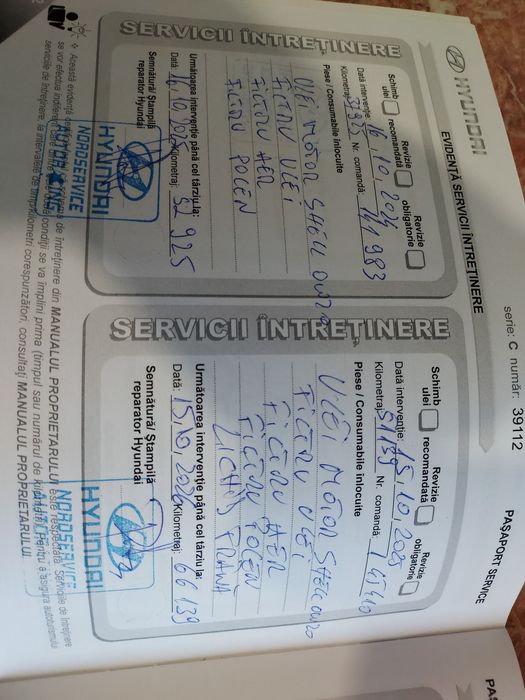 HYUNDAI
EVIDENȚĂ SERVICII ÎNTREȚINERE
serie: C număr: 39112
PAȘAPORT SERVICE
SERVICII ÎNTREȚINERE
Schimb ulei
Revizie recomandată
Revizie obligatorie
Data intervenție: 16.10.2024
Kilometraj: Nr. comandă:
Piese / Consumabile înlocuite
ULEI MOTOR SHELL 0W20
FILTRU ULEI
FILTRU AER
FILTRU POLEN
Următoarea intervenție până cel târziu la:
Dată: 16.10.2025 Kilometraj: 52 925
Semnătură/ Ștampilă
reparator Hyundai
HYUNDAI
NORDSERVICE
SERVICII ÎNTREȚINERE
Schimb ulei
Revizie recomandată
Revizie obligatorie
Data intervenție: 15.10.2025
Kilometraj: 51139 Nr. comandă:
Piese / Consumabile înlocuite
ULEI MOTOR SHELL 0W20
FILTRU ULEI
FILTRU AER
FILTRU POLEN
LICHID FRANĂ
Următoarea intervenție până cel târziu la:
Dată: 15.10.2026 Kilometraj: 66 139
Semnătură/ Ștampilă
reparator Hyundai
HYUNDAI
NORDSERVICE
de întreținere din MANUALUL PROPRIETARULUI este respectată. Serviciile de întreținere
se va împlini prima (timpul sau numărul de kilometri). Pentru a asigura autoturismului
serviciile de întreținere, la intervalele de timp/kilometri corespunzători, consultați MANUALUL PROPRIETARULUI